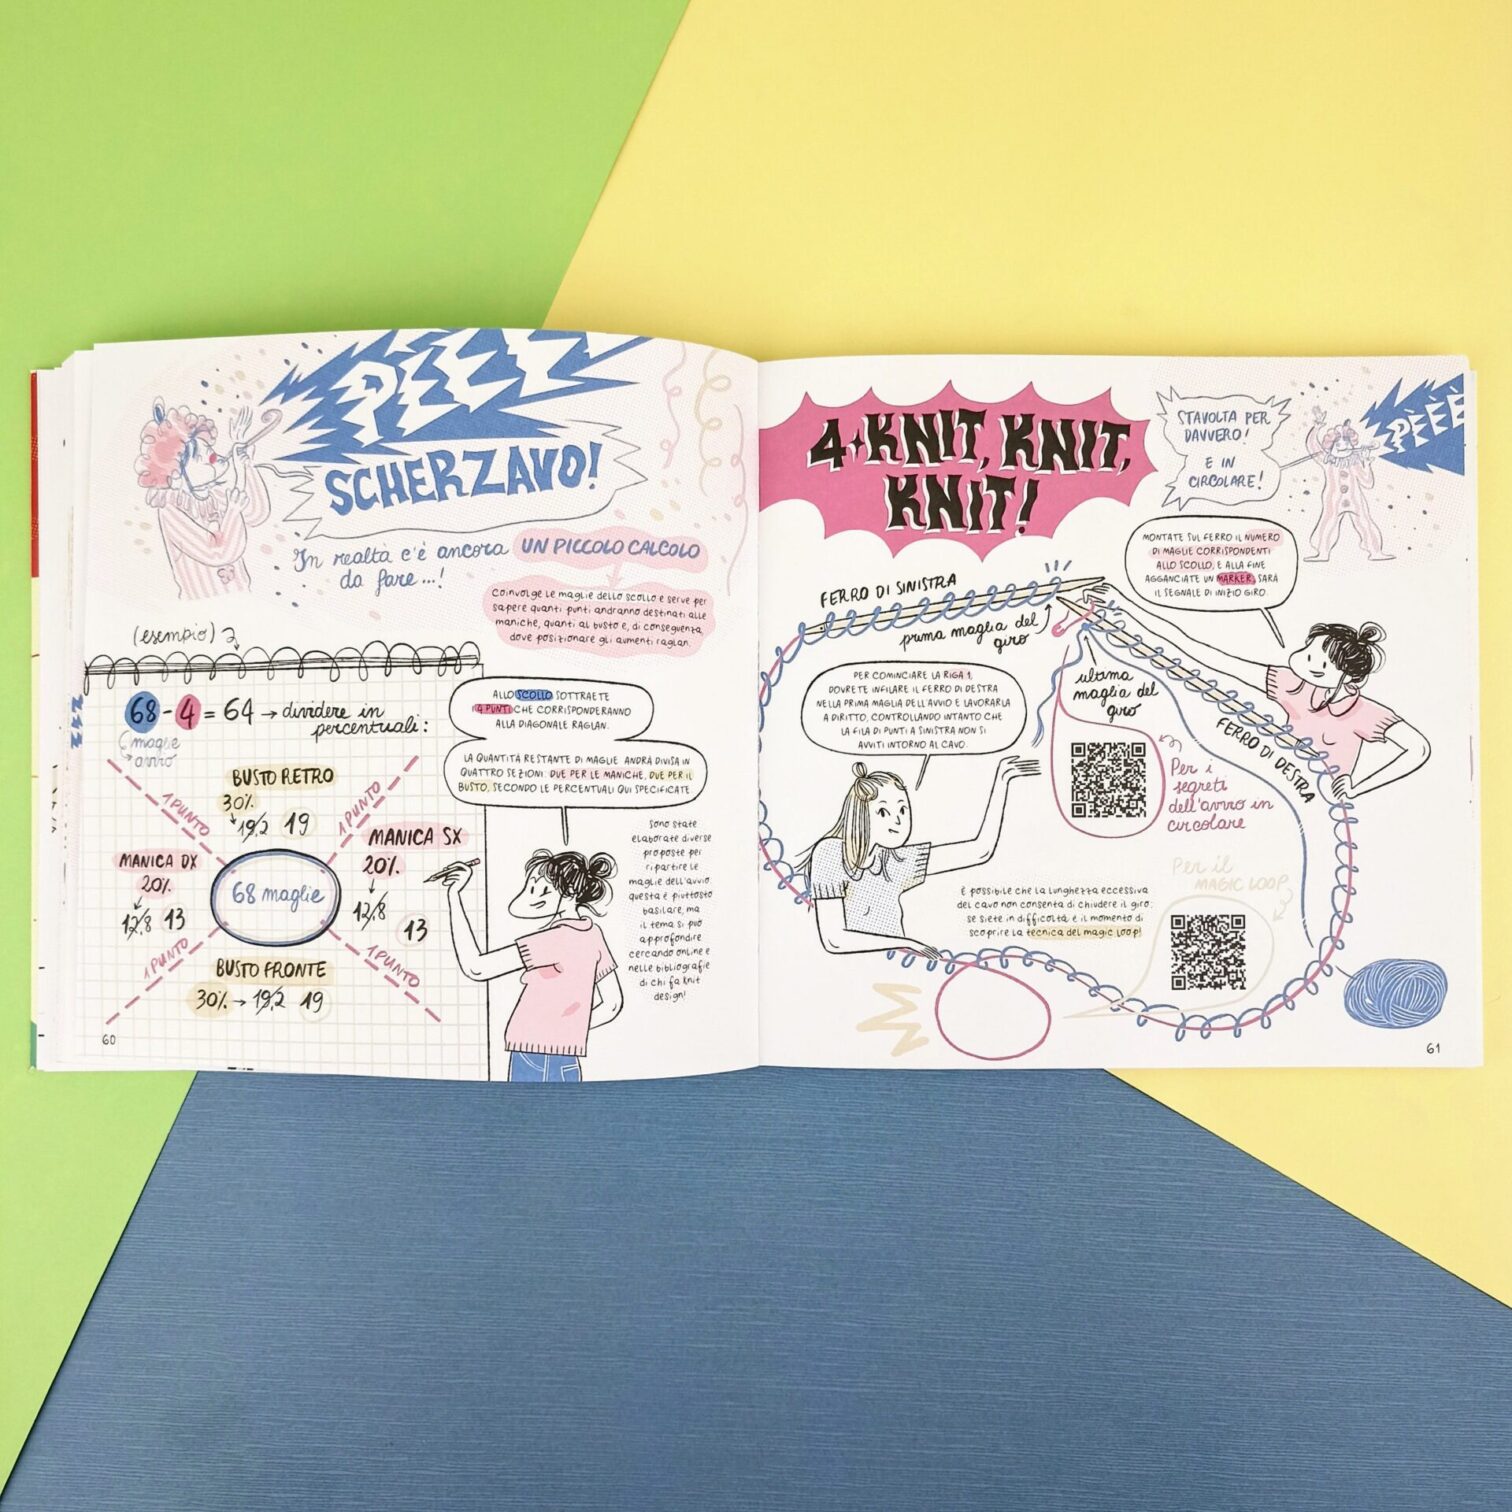 PÈÈÈ
SCHERZAVO!
In realtà c'è ancora UN PICCOLO CALCOLO
da fare...!
Coinvolge le maglie dello scollo e serve per
sapere quanti punti andranno destinati alle
maniche, quanti al busto e, di conseguenza,
dove posizionare gli aumenti raglan.
(esempio)
68 - 4 = 64 → dividere in
percentuali:
maglie
avvio
ALLO SCOLLO SOTTRAETE
I 4 PUNTI CHE CORRISPONDERANNO
ALLA DIAGONALE RAGLAN.
LA QUANTITÀ RESTANTE DI MAGLIE ANDRÀ DIVISA IN
QUATTRO SEZIONI: DUE PER LE MANICHE, DUE PER IL
BUSTO, SECONDO LE PERCENTUALI QUI SPECIFICATE
BUSTO RETRO
30%
19,2 19
1 PUNTO
1 PUNTO
MANICA DX
20%
12,8 13
68 maglie
MANICA SX
20%
12,8
13
1 PUNTO
1 PUNTO
BUSTO FRONTE
30% → 19,2 19
Sono state
elaborate diverse
proposte per
ripartire le
maglie dell'avvio:
questa è piuttosto
basilare, ma
il tema si può
approfondire
cercando online e
nelle bibliografie
di chi fa knit
design!
60
4. KNIT, KNIT,
KNIT!
STAVOLTA PER
DAVVERO!
E IN
CIRCOLARE!
PÈÈÈ
MONTATE SUL FERRO IL NUMERO
DI MAGLIE CORRISPONDENTI
ALLO SCOLLO, E ALLA FINE
AGGANCIATE UN MARKER: SARÀ
IL SEGNALE DI INIZIO GIRO.
FERRO DI SINISTRA
prima maglia del
giro
ultima
maglia del
giro
FERRO DI DESTRA
PER COMINCIARE LA RIGA 1,
DOVRETE INFILARE IL FERRO DI DESTRA
NELLA PRIMA MAGLIA DELL'AVVIO E LAVORARLA
A DIRITTO, CONTROLLANDO INTANTO CHE
LA FILA DI PUNTI A SINISTRA NON SI
AVVITI INTORNO AL CAVO.
Per i
segreti
dell'avvio in
circolare
È possibile che la lunghezza eccessiva
del cavo non consenta di chiudere il giro:
se siete in difficoltà è il momento di
scoprire la tecnica del magic loop!
Per il
MAGIC LOOP
61